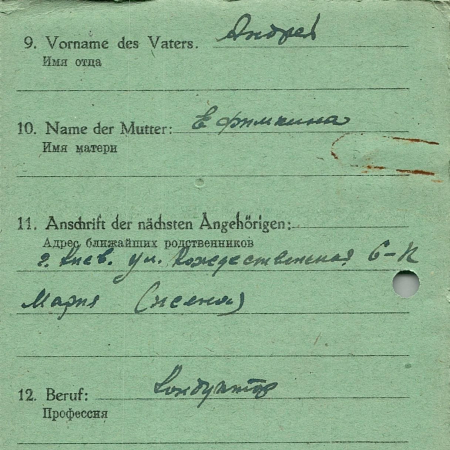 9. Vorname des Vaters. Андрей
Имя отца
10. Name der Mutter: Ефимкина
Имя матери
11. Anschrift der nächsten Angehörigen:
Адрес ближайших родственников
г. Киев. ул. Рождественская 6-К
Мария (жена)
12. Beruf: Кондуктор
Профессия